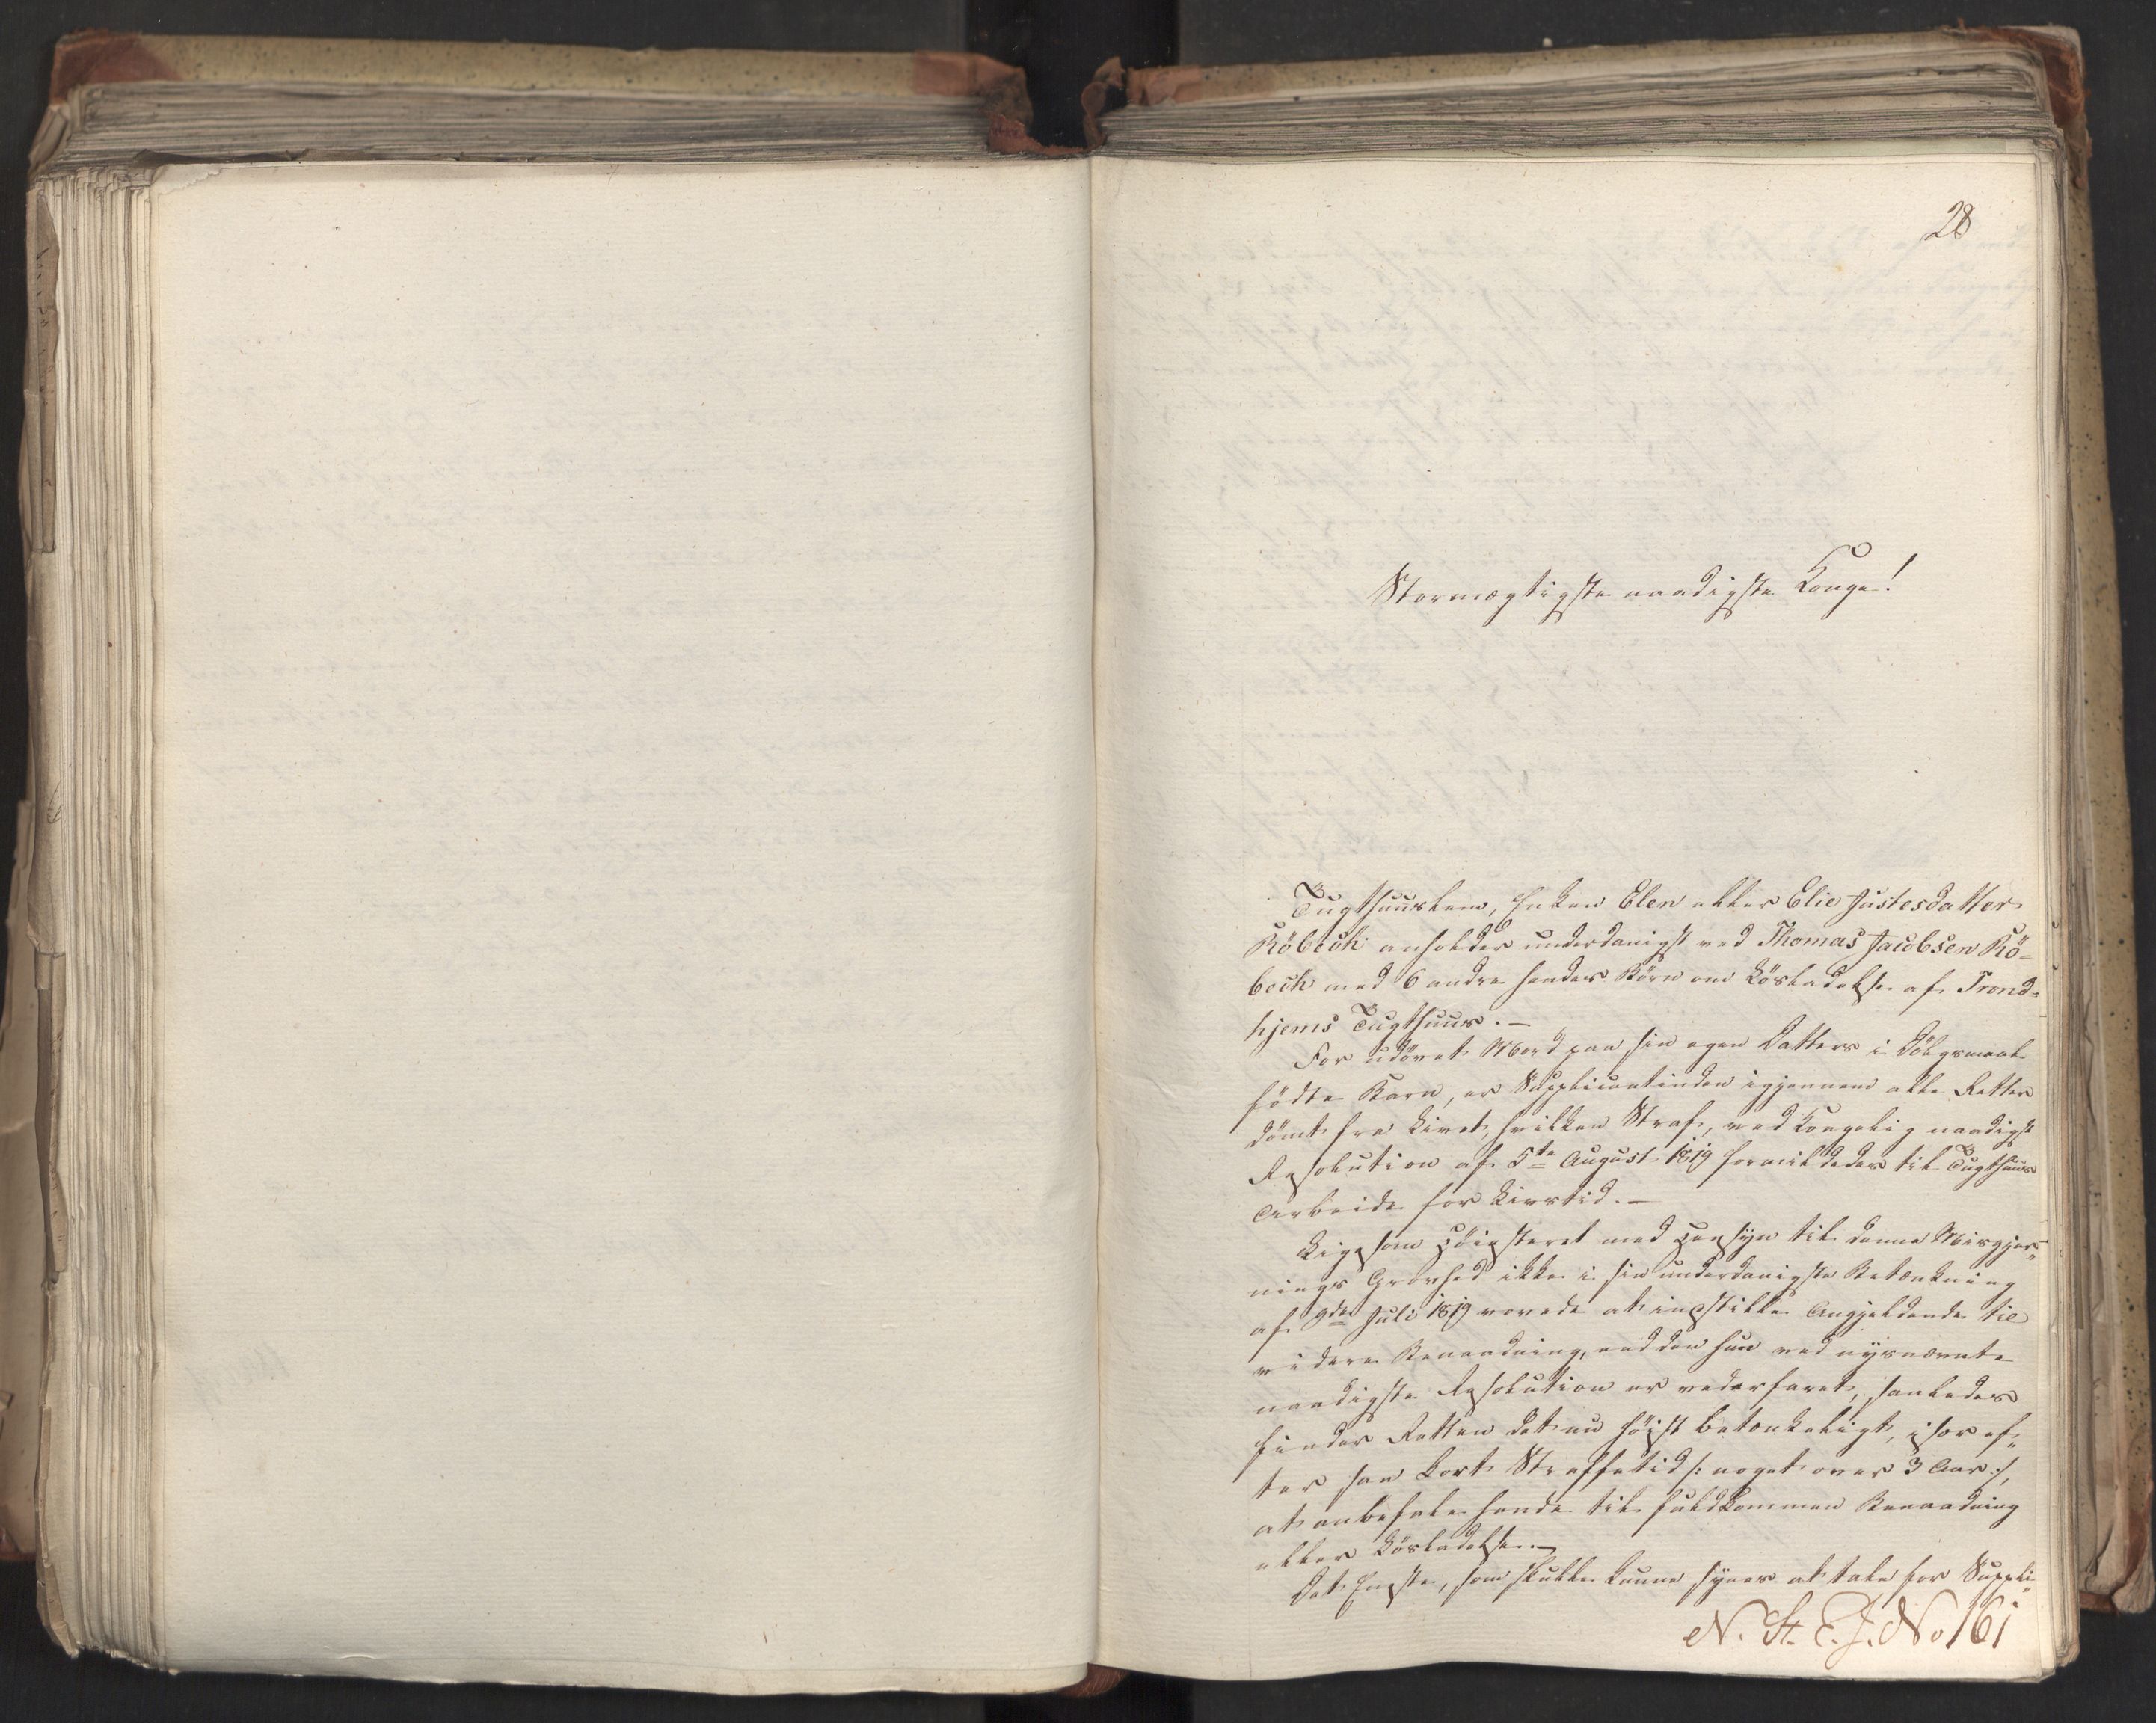 28
Stormægtigste naadigste Konge!
Tugthuuslem, Enken Elen eller Elie Justesdatter
Röbech anholder underdanigst ved Thomas Jacobsen Rö=
bech med 6 andre hendes Börn om Lösladelse af Trond=
hjems Tugthuus. —
For udövet Mord paa sin egen Datters i Dölgsmaal
födte Barn, er Supplicantinden igjennem alle Retter
dömt fra Livet, hvilken Straf, ved Kongelig naadigst
Resolution af 5te August 1819 formildedes til Tugthuus
Arbeide for Livstid. —
Ligesom Höiesteret med Hensyn til denne Misgjer„
nings Grovhed ikke i sin underdanigste Betænkning
af 9de Juli 1819 vovede at indstille Angjeldende til
videre Benaadning, end den hun ved nysnævnte
naadigste Resolution er vederfaret, saaledes
finder Retten det nu höist betænkeligt, især ef„
ter saa kort Straffetid /: noget over 3 Aar :/,
at anbefale hende til fuldkommen Benaadning
eller Löslades.—
Det Eneste, som skulde kunne synes at tale for Suppli„
N. St. E. J. No 161